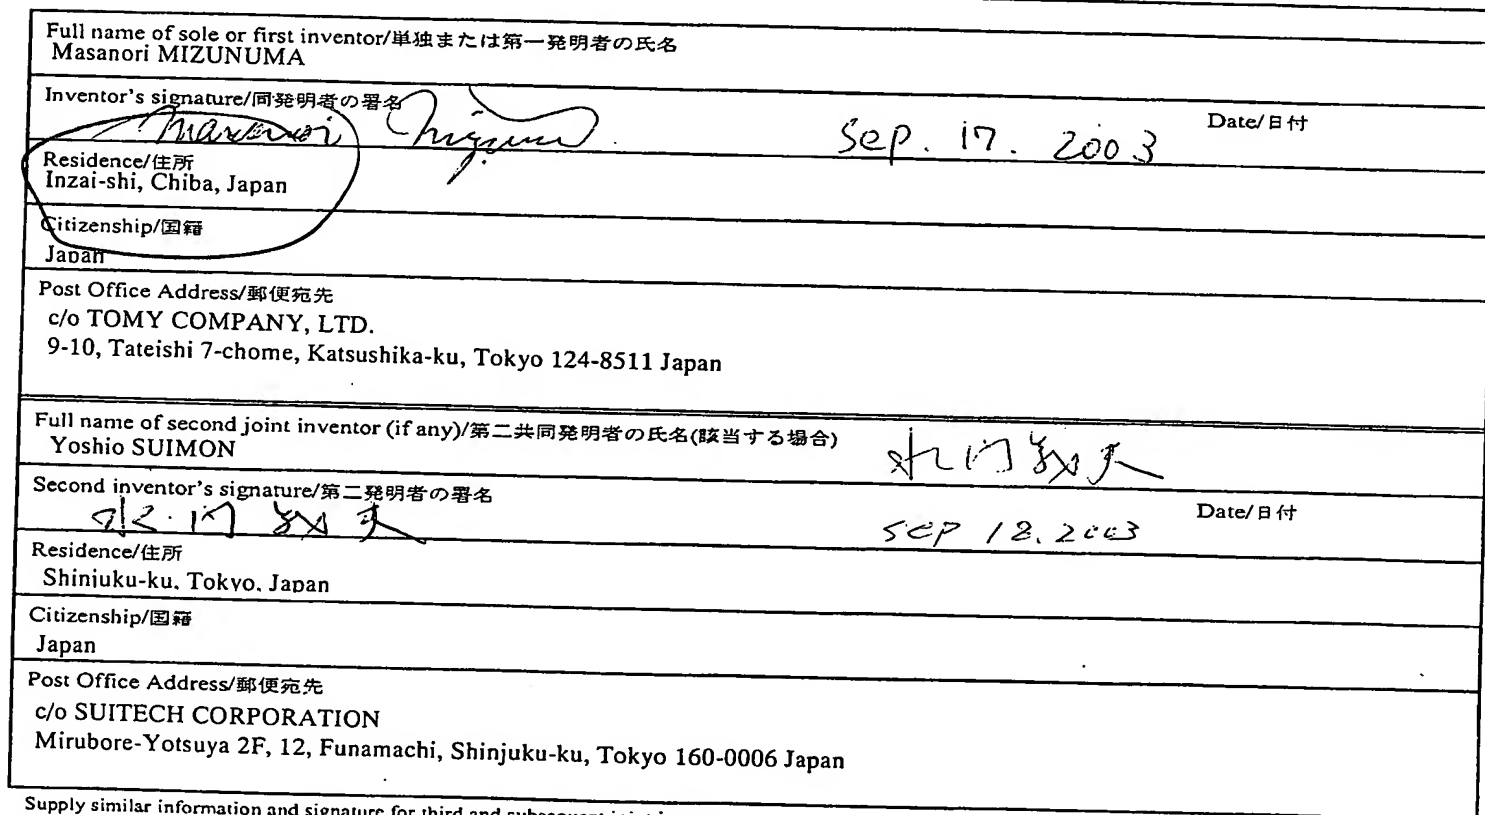 Full name of sole or first inventor/単独または第一発明者の氏名
Masanori MIZUNUMA
Inventor's signature/同発明者の署名
Masanori Mizunuma
Sep. 17. 2003
Date/日付
Residence/住所
Inzai-shi, Chiba, Japan
Citizenship/国籍
Japan
Post Office Address/郵便宛先
c/o TOMY COMPANY, LTD.
9-10, Tateishi 7-chome, Katsushika-ku, Tokyo 124-8511 Japan
Full name of second joint inventor (if any)/第二共同発明者の氏名(該当する場合)
Yoshio SUIMON
水門
夫
Second inventor's signature/第二発明者の署名
水門
夫
Sep 18. 2003
Date/日付
Residence/住所
Shinjuku-ku, Tokyo, Japan
Citizenship/国籍
Japan
Post Office Address/郵便宛先
c/o SUITECH CORPORATION
Mirubore-Yotsuya 2F, 12, Funamachi, Shinjuku-ku, Tokyo 160-0006 Japan
Supply similar information and signature for third and subsequent joint